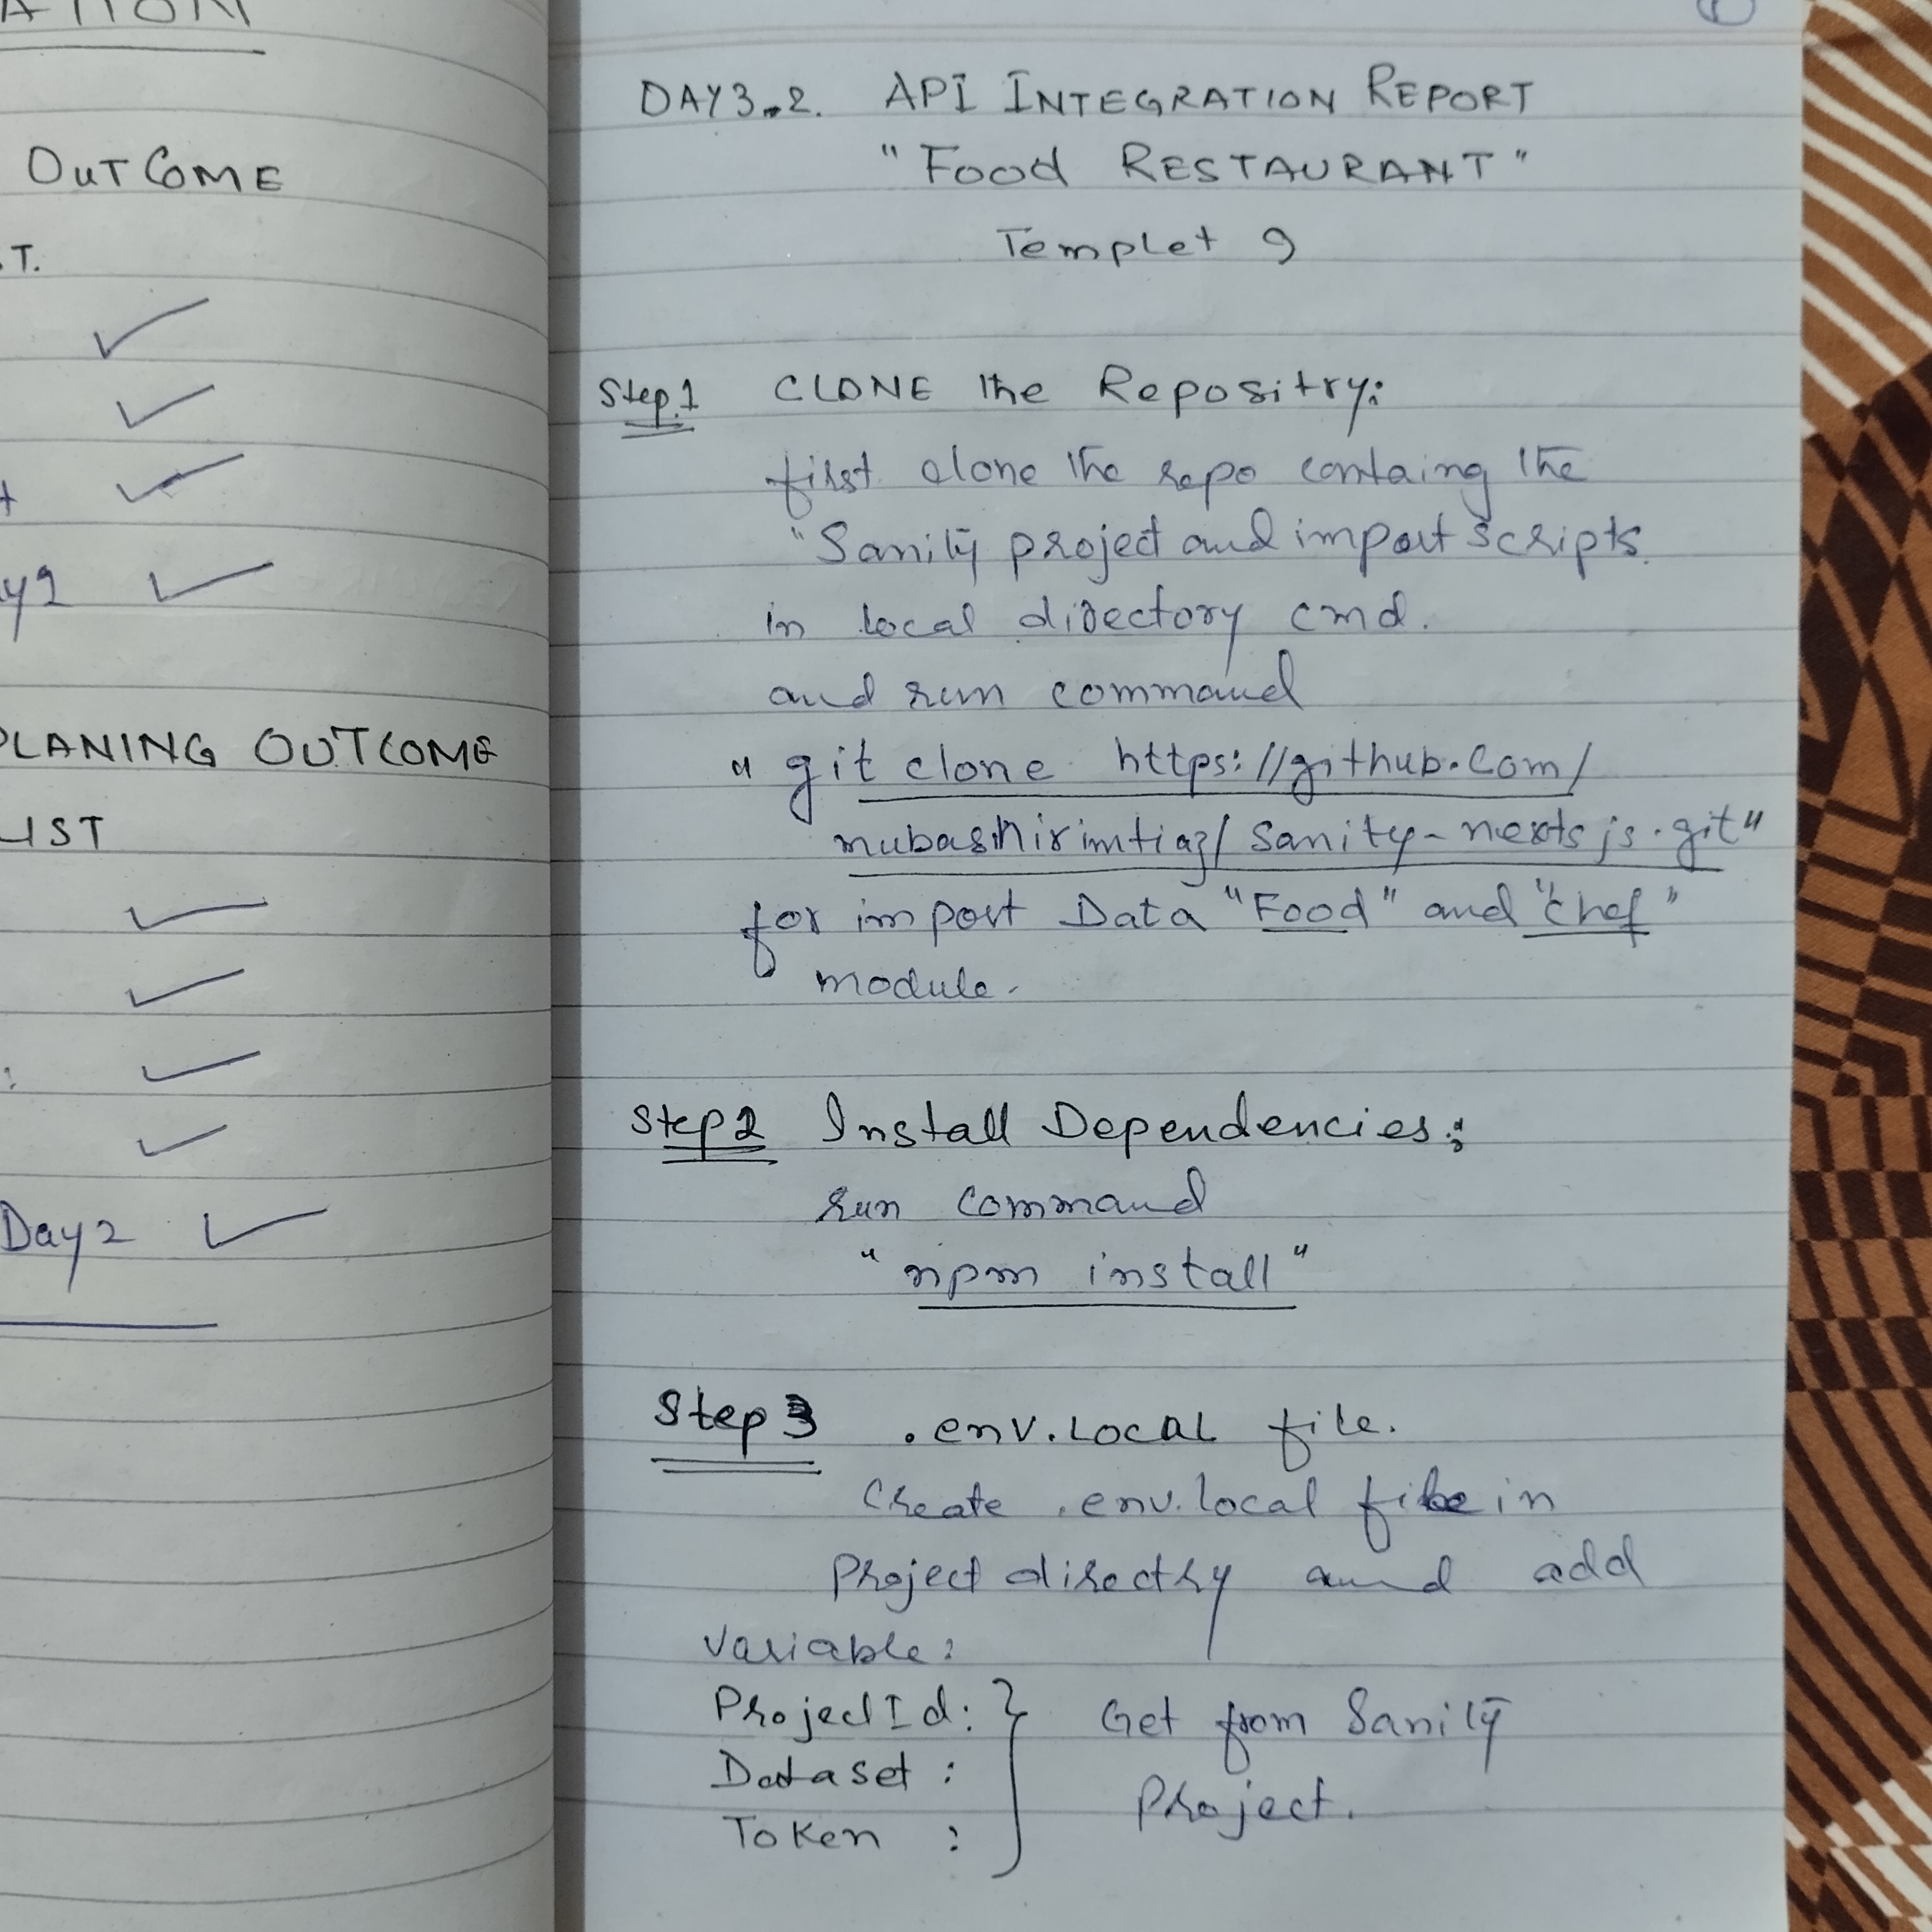 OUTCOME
T.
✓
✓
✓
✓
PLANING OUTCOME
LIST
✓
✓
: ✓
✓
Day 2 ✓
DAY 3.2. API INTEGRATION REPORT
"Food RESTAURANT"
Templet 9
Step.1 CLONE the Repositry:
first clone the repo containg the
"Sanity project and import scripts.
in local directory cmd.
and run command
"git clone https://github.com/
mubashirimtiaz/sanity-nextsjs.git"
for import Data "Food" and "chef"
module.
Step 2 Install Dependencies:
run command
"npm install"
Step 3 .env.local file.
Create .env.local file in
Project directry and add
variable:
ProjectId: } Get from Sanity
Dataset :
Project.
Token :